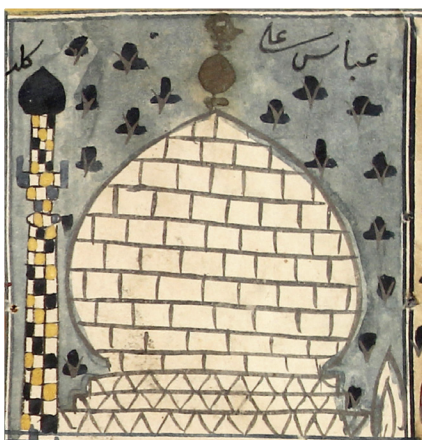 عباس علی
کلد